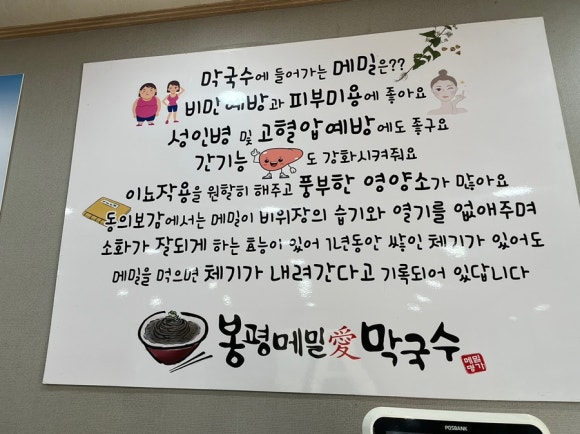 막국수에 들어가는 메밀은??
비만예방과 피부미용에 좋아요
성인병 및 고혈압예방에도 좋구요
간기능도 강화시켜줘요
이뇨작용을 원할히 해주고 풍부한 영양소가 많아요
동의보감에서는 메밀이 비위장의 습기와 열기를 없애주며
소화가 잘되게 하는 효능이 있어 1년동안 쌓인 체기가 있어도
메밀을 먹으면 체기가 내려간다고 기록되어 있답니다
봉평메밀愛막국수
메밀
명가
POSBANK